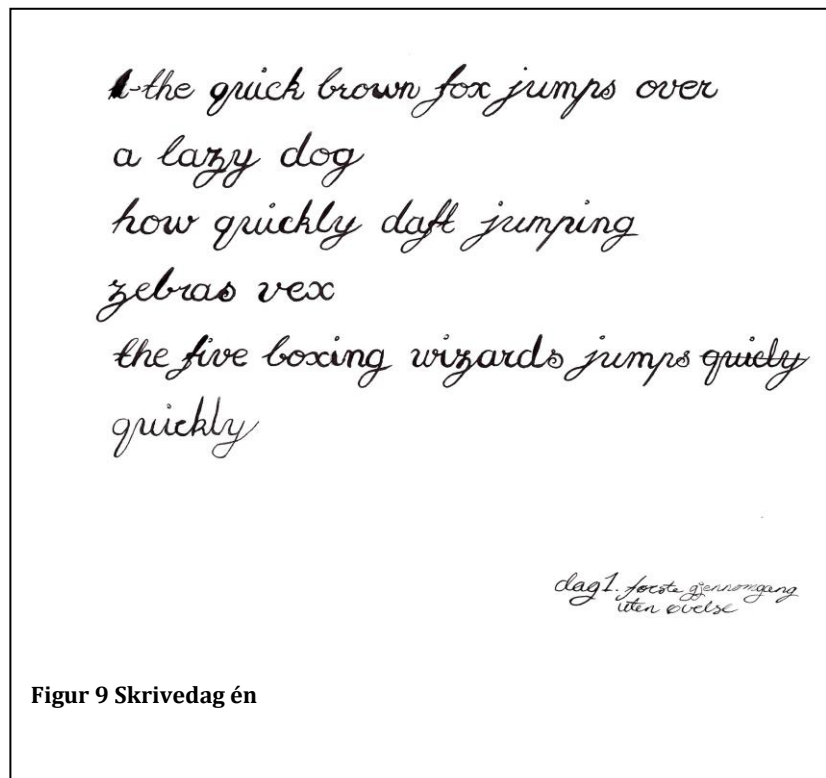 the quick brown fox jumps over
a lazy dog
how quickly daft jumping
zebras vex
the five boxing wizards jumps quicly
quickly
dag 1. første gjennomgang
uten øvelse
Figur 9 Skrivedag én